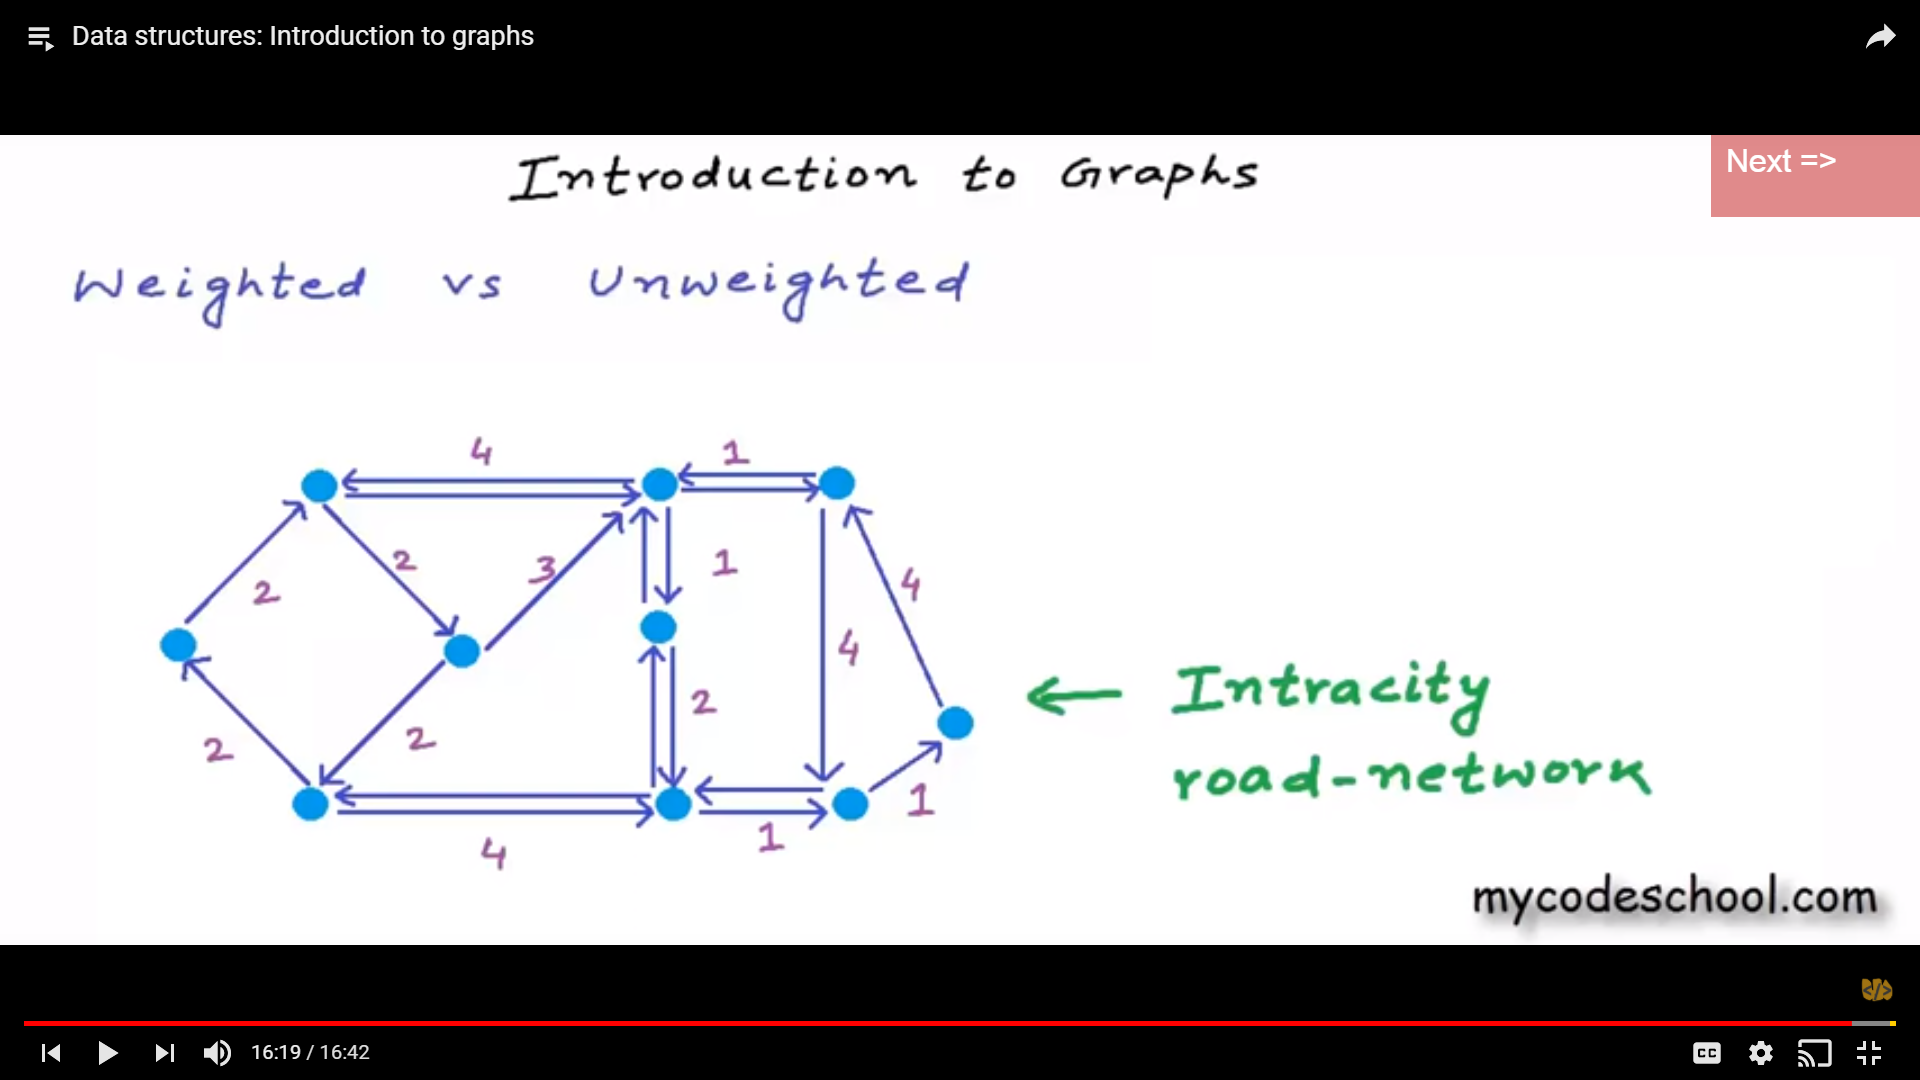 Data structures: Introduction to graphs
Introduction to Graphs
Next =>
Weighted vs Unweighted
4
1
2
2
3
1
4
4
2
2
2
4
1
1
← Intracity
road-network
mycodeschool.com
16:19 / 16:42
CC